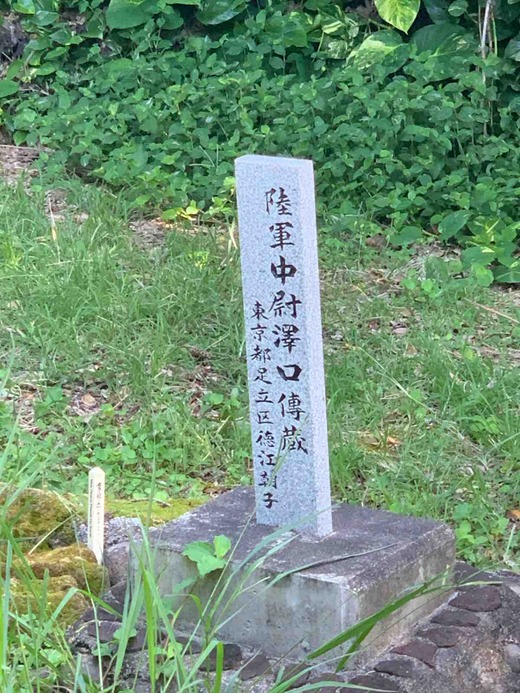 陸軍中尉澤口傳藏
東京都足立区徳江朝子